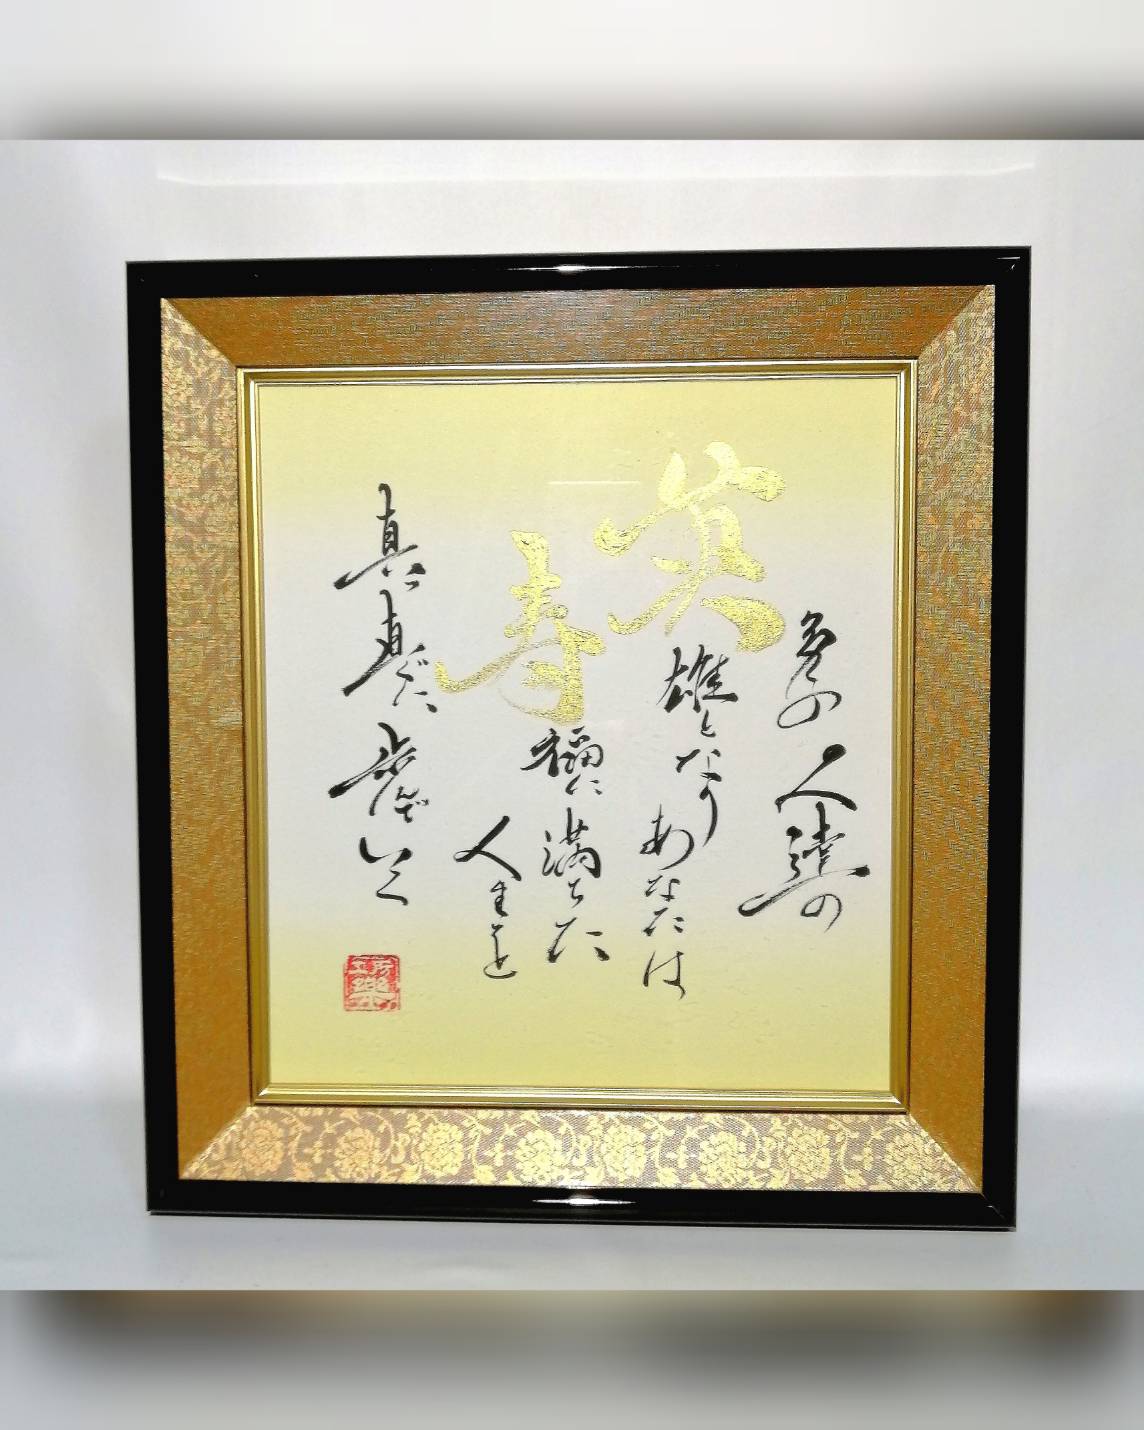 多くの人達の
英雄となりあなたは
寿福に満ちた
人生を
真直ぐに歩んでいく